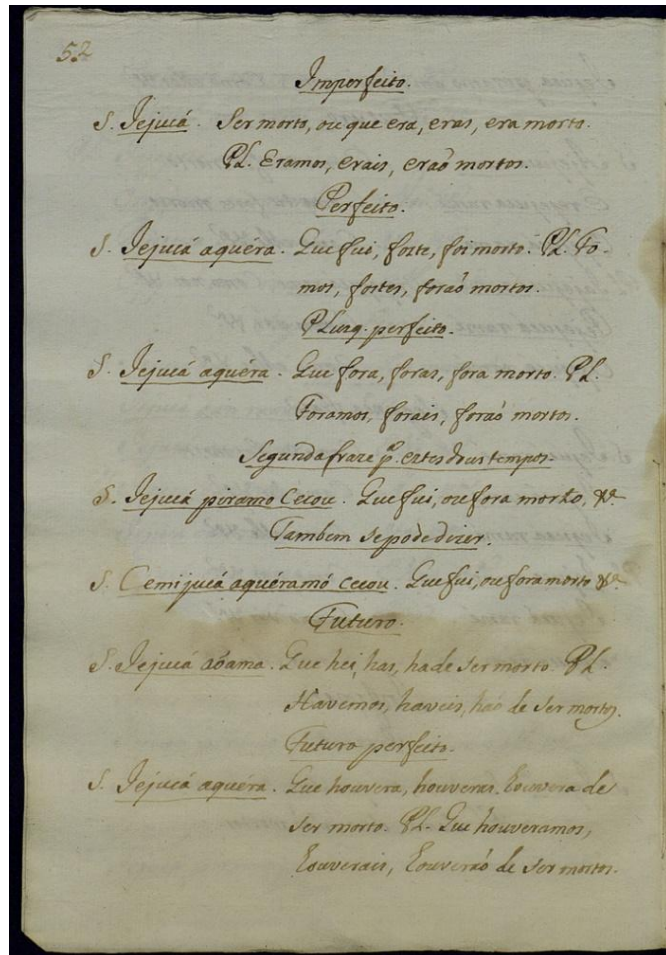 52
Imperfeito.
S. Jejucá. Ser morto, ou que era, eras, era morto.
PL. Eramos, erais, eraõ mortos.
Perfeito.
S. Jejucá aquéra. Que fui, foste, foi morto. PL. Fo-
mos, fostes, foraõ mortos.
PLusq. perfeito.
S. Jejucá aquéra. Que fora, foras, fora morto. PL.
Foramos, forais, foraõ mortos.
Segunda fraze pª. estes dous tempos.
S. Jejucá piramo cecou. Que fui, ou fora morto, &ª
Tambem se pode dizer.
S. Cemijucá aquéramó cecou. Que fui, ou fora morto &ª
Futuro.
S. Jejucá aõama. Que hei, has, ha de ser morto. PL.
Havemos, haveis, haõ de ser mortos.
Futuro perfeito.
S. Jejucá aquéra. Que houvera, houveras, houvera de
ser morto. PL. Que houveramos,
houverais, houveraõ de ser mortos.